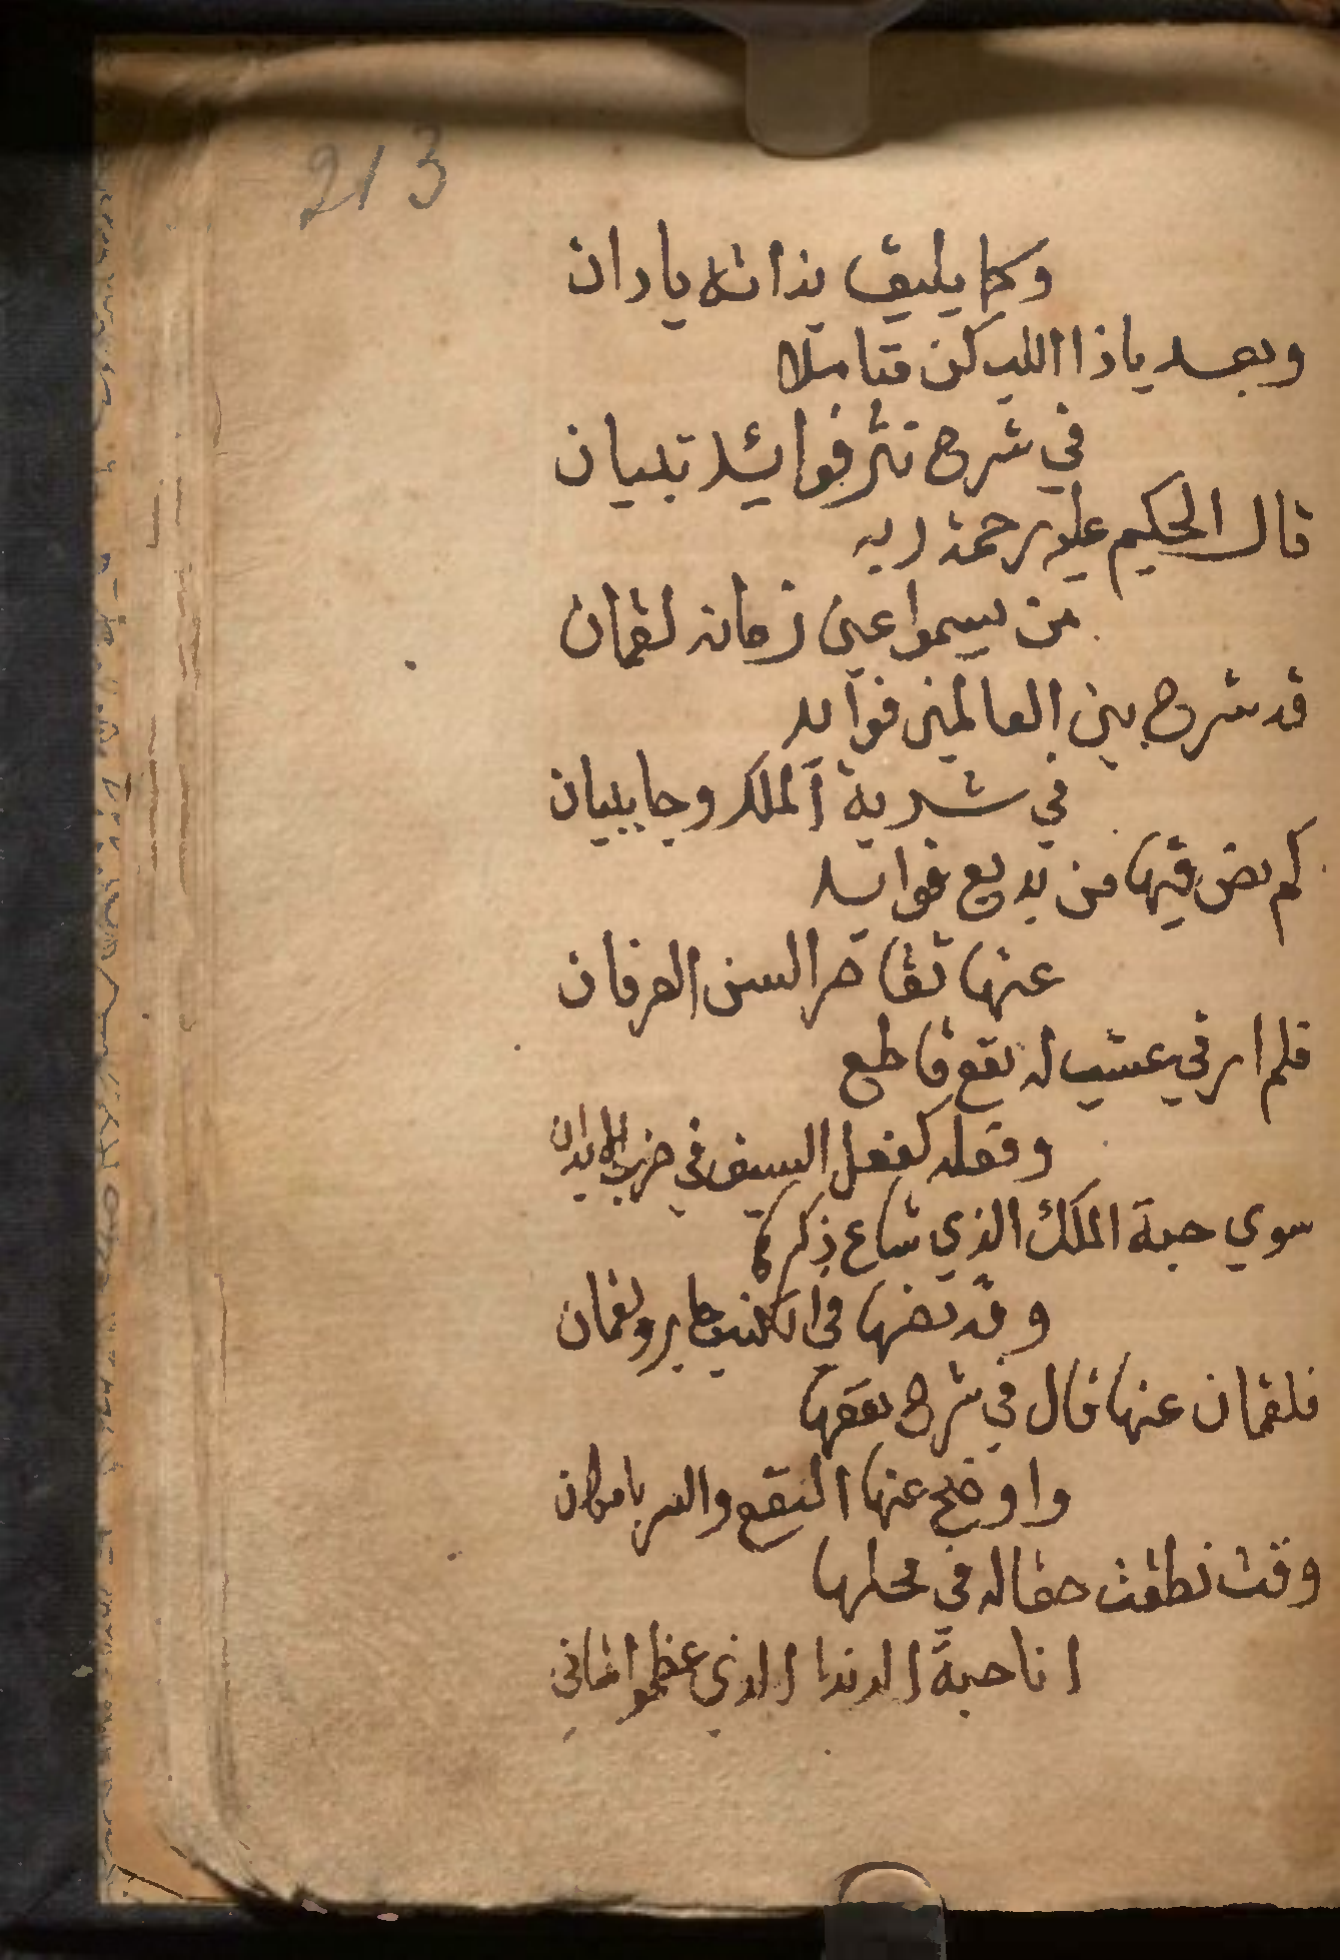 213
وكما يليق بذاته يادان
وبعد ياذا اللب كن متاملا
في شرح نثر فوائد تبيان
قال الحكيم عليه رحمة ربه
من يسموا عين زمانه لقمان
قد شرح بين العالمين فوايد
في شربة الملك وجا ببيان
كم نص فيها من بديع فوائد
عنها تقاصر السن العرفان
فلم ار في عشب له نفع قاطع
وفعله كفعل السيف في ضرب الابدان
سوي حبة الملك الذي شاع ذكرها
وقد نصها في الكتب جابر ولقمان
فلقمان عنها قال في شرح نفعها
واوضح عنها النفع والسر بامكان
وقت نطقت حقا له في محلها
انا حبة الدندا الذي عظموا شاني